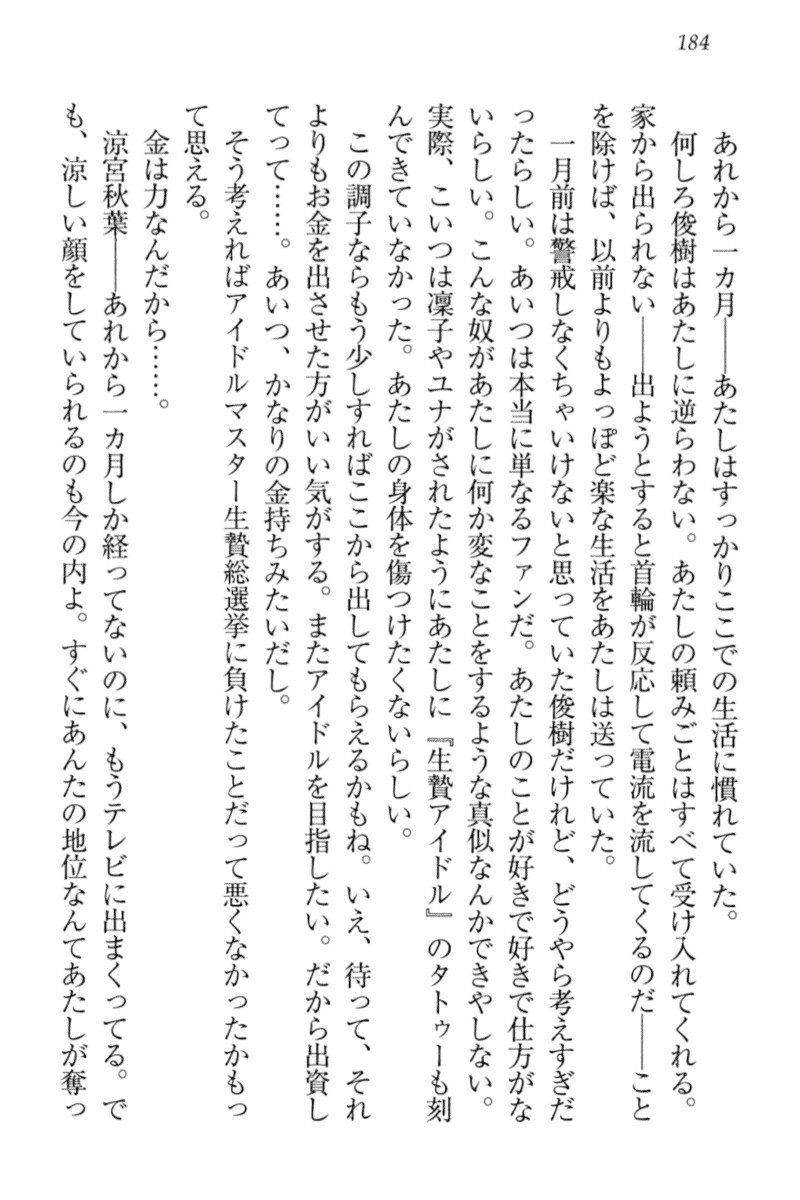 184
あれから一カ月――あたしはすっかりここでの生活に慣れていた。
何しろ俊樹はあたしに逆らわない。あたしの頼みごとはすべて受け入れてくれる。
家から出られない――出ようとすると首輪が反応して電流を流してくるのだ――こと
を除けば、以前よりもよっぽど楽な生活をあたしは送っていた。
一月前は警戒しなくちゃいけないと思っていた俊樹だけれど、どうやら考えすぎだ
ったらしい。あいつは本当に単なるファンだ。あたしのことが好きで好きで仕方がな
いらしい。こんな奴があたしに何か変なことをするような真似なんかできやしない。
実際、こいつは凛子やユナがされたようにあたしに『生贄アイドル』のタトゥーも刻
んできていなかった。あたしの身体を傷つけたくないらしい。
この調子ならもう少しすればここから出してもらえるかもね。いえ、待って、それ
よりもお金を出させた方がいい気がする。またアイドルを目指したい。だから出資し
てって……。あいつ、かなりの金持ちみたいだし。
そう考えればアイドルマスター生贄総選挙に負けたことだって悪くなかったかもっ
て思える。
金は力なんだから……。
涼宮秋葉――あれから一カ月しか経ってないのに、もうテレビに出まくってる。で
も、涼しい顔をしていられるのも今の内よ。すぐにあんたの地位なんてあたしが奪っ